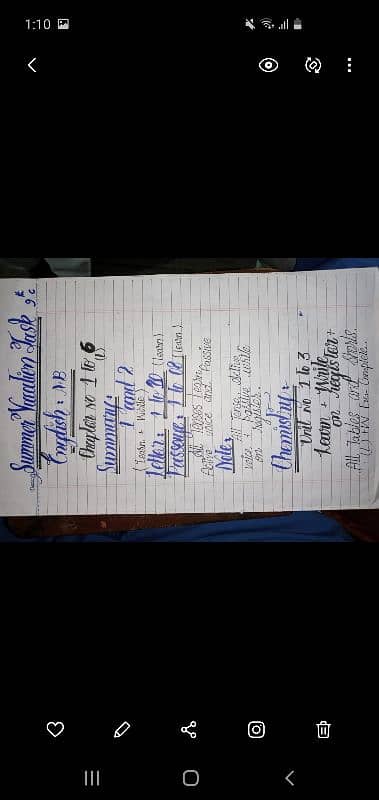 1:10
Summer Vacation Task 9th
English: NB
Chapter no 1 to 6
Summary:
1 and 2
(Learn + Write)
Letter: 1 to 10 (learn)
Passage: 1 to 08 (learn)
All Tenses learn
Active voice and Passive
Note:
All Tense Active
voice Passive write
on Register.
Chemistry:
Unit no 1 to 3
Learn + Write
on Register +
All Tables and Shorts.